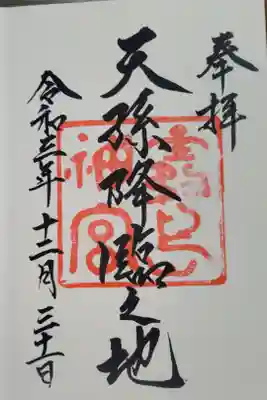 奉拝
天孫降臨之地
霧島
神宮
令和三年十二月三十一日